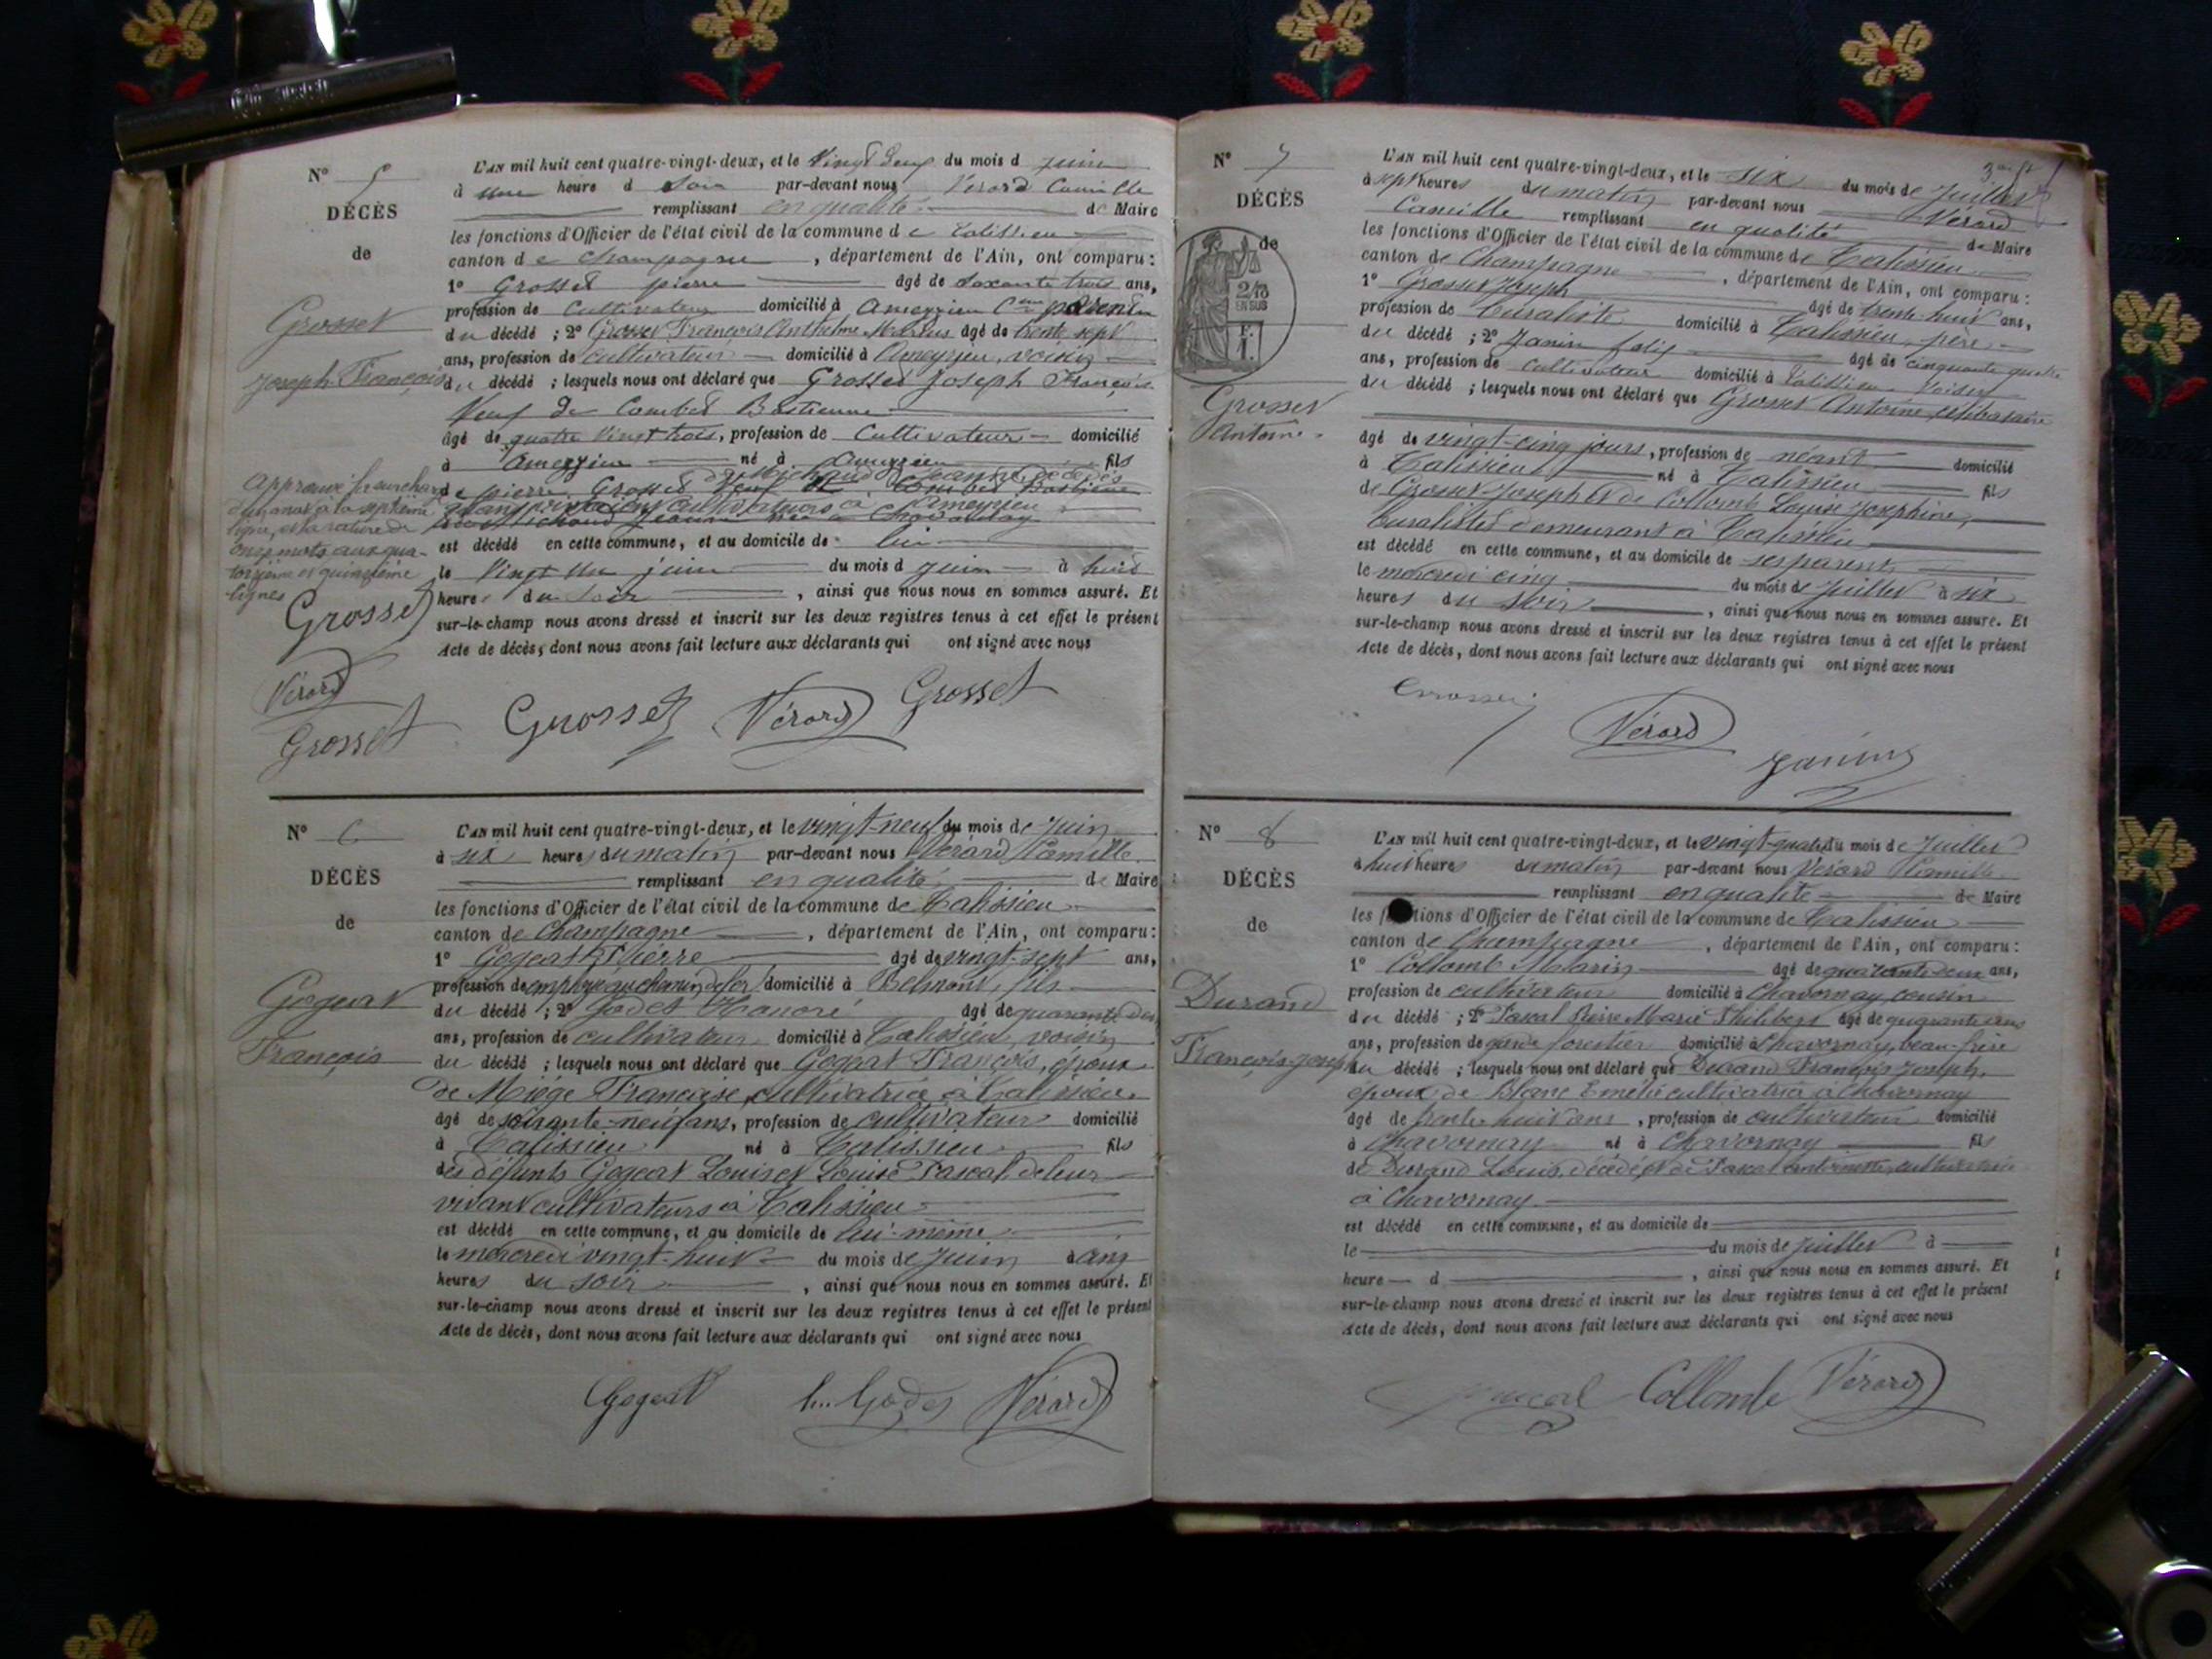 N° 5
DÉCÈS
de
Grosset
Joseph François
L'AN mil huit cent quatre-vingt-deux, et le Vingt deux du mois d juin
à une heure d soir par-devant nous Vérard Camille
remplissant en qualité de Maire
les fonctions d'Officier de l'état civil de la commune de Talissieu
canton de Champagne, département de l'Ain, ont comparu :
1° Grosset pierre âgé de soixante trois ans,
profession de Cultivateur domicilié à Ameyzieu parent
du décédé ; 2° Grosset François Anthelme Marius âgé de trente sept
ans, profession de cultivateur domicilié à Ameyzieu, voisin
du décédé ; lesquels nous ont déclaré que Grosset Joseph François
Veuf de Combet Bastienne
âgé de quatre Vingt trois, profession de Cultivateur domicilié
à Ameyzieu né à Ameyzieu fils
de pierre Grosset
est décédé en cette commune, et au domicile de lui
le Vingt un juin du mois d juin à huit
heures du Soir, ainsi que nous nous en sommes assuré. Et
sur-le-champ nous avons dressé et inscrit sur les deux registres tenus à cet effet le présent
Acte de décès, dont nous avons fait lecture aux déclarants qui ont signé avec nous
Approuvé la surcharge
d'un mot à la septième
ligne, et la rature de
onze mots aux qua-
torzième et quinzième
lignes
Grosset
Vérard
Grosset
Grosset Vérard Grosset
N° 6
DÉCÈS
de
Gogeat
François
L'AN mil huit cent quatre-vingt-deux, et le vingt-neuf du mois de Juin
à six heures du matin par-devant nous Vérard Camille
remplissant en qualité de Maire
les fonctions d'Officier de l'état civil de la commune de Talissieu
canton de Champagne, département de l'Ain, ont comparu :
1° Gogeat Pierre âgé de vingt-sept ans,
profession de employé au chemin de fer domicilié à Belmont, fils
du décédé ; 2° Godet Honoré âgé de quarante deux
ans, profession de cultivateur domicilié à Talissieu, voisin
du décédé ; lesquels nous ont déclaré que Gogeat François, époux
de Miège Françoise, cultivatrice à Talissieu
âgé de soixante-neuf ans, profession de cultivateur domicilié
à Talissieu né à Talissieu fils
des défunts Gogeat Louis et Louise Pascal, de leur
vivant cultivateurs à Talissieu
est décédé en cette commune, et au domicile de lui-même
le mercredi vingt-huit du mois de Juin à cinq
heures du soir, ainsi que nous nous en sommes assuré. Et
sur-le-champ nous avons dressé et inscrit sur les deux registres tenus à cet effet le présent
Acte de décès, dont nous avons fait lecture aux déclarants qui ont signé avec nous
Gogeat h. Godet Vérard
N° 7
DÉCÈS
de
2/10
EN SUS
F.
1.
Grosset
Antoine
L'AN mil huit cent quatre-vingt-deux, et le six du mois de Juillet
à sept heures du matin par-devant nous Vérard
Camille remplissant en qualité de Maire
les fonctions d'Officier de l'état civil de la commune de Talissieu
canton de Champagne, département de l'Ain, ont comparu :
1° Grosset Joseph âgé de trente-huit ans,
profession de buraliste domicilié à Talissieu, père
du décédé ; 2° Janin félix âgé de cinquante quatre
ans, profession de cultivateur domicilié à Talissieu Voisin
du décédé ; lesquels nous ont déclaré que Grosset Antoine, célibataire
âgé de vingt-cinq jours, profession de néant domicilié
à Talissieu né à Talissieu fils
de Grosset Joseph et de Collomb Louise Joséphine,
buralistes demeurant à Talissieu
est décédé en cette commune, et au domicile de ses parents
le mercredi cinq du mois de Juillet à six
heures du soir, ainsi que nous nous en sommes assuré. Et
sur-le-champ nous avons dressé et inscrit sur les deux registres tenus à cet effet le présent
Acte de décès, dont nous avons fait lecture aux déclarants qui ont signé avec nous
Grosset
Vérard
Janin
N° 8
DÉCÈS
de
Durand
François-Joseph
L'AN mil huit cent quatre-vingt-deux, et le vingt-quatre du mois de Juillet
à huit heures du matin par-devant nous Vérard Camille
remplissant en qualité de Maire
les fonctions d'Officier de l'état civil de la commune de Talissieu
canton de Champagne, département de l'Ain, ont comparu :
1° Collomb Marin âgé de quarante deux ans,
profession de cultivateur domicilié à Chavornay, cousin
du décédé ; 2° Pascal Pierre Marie Philibert âgé de quarante ans
ans, profession de garde forestier domicilié à Chavornay, beau-frère
du décédé ; lesquels nous ont déclaré que Durand François Joseph,
époux de Blanc Emélie cultivatrice à Chavornay
âgé de trente-huit ans, profession de cultivateur domicilié
à Chavornay né à Chavornay fils
de Durand Louis, décédé et de Pascal Antoinette, cultivatrice
à Chavornay
est décédé en cette commune, et au domicile de
le du mois de Juillet à
heure d, ainsi que nous nous en sommes assuré. Et
sur-le-champ nous avons dressé et inscrit sur les deux registres tenus à cet effet le présent
Acte de décès, dont nous avons fait lecture aux déclarants qui ont signé avec nous
Pascal Collomb Vérard